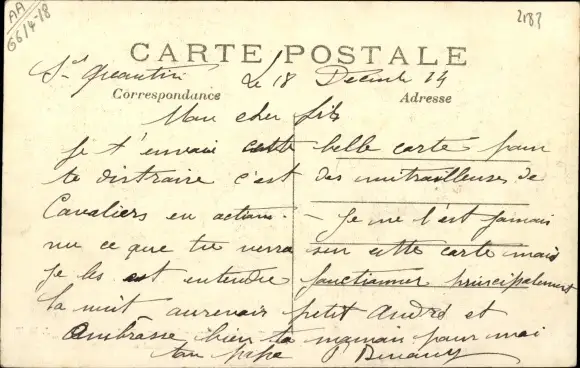 AA
GG14-18
2183
CARTE POSTALE
St Quentin Le 18 Decemb 14
Correspondance Adresse
Mon cher fils
Je t'envoie cette belle carte pour
te distraire c'est des mitrailleuses de
Cavaliers en action. — Je ne l'est jamais
vu ce que tu verra sur cette carte mais
je les est entendre fonctionner principalement
la nuit aurevoir petit André et
Ambrasse bien ta maman pour moi
ton papa